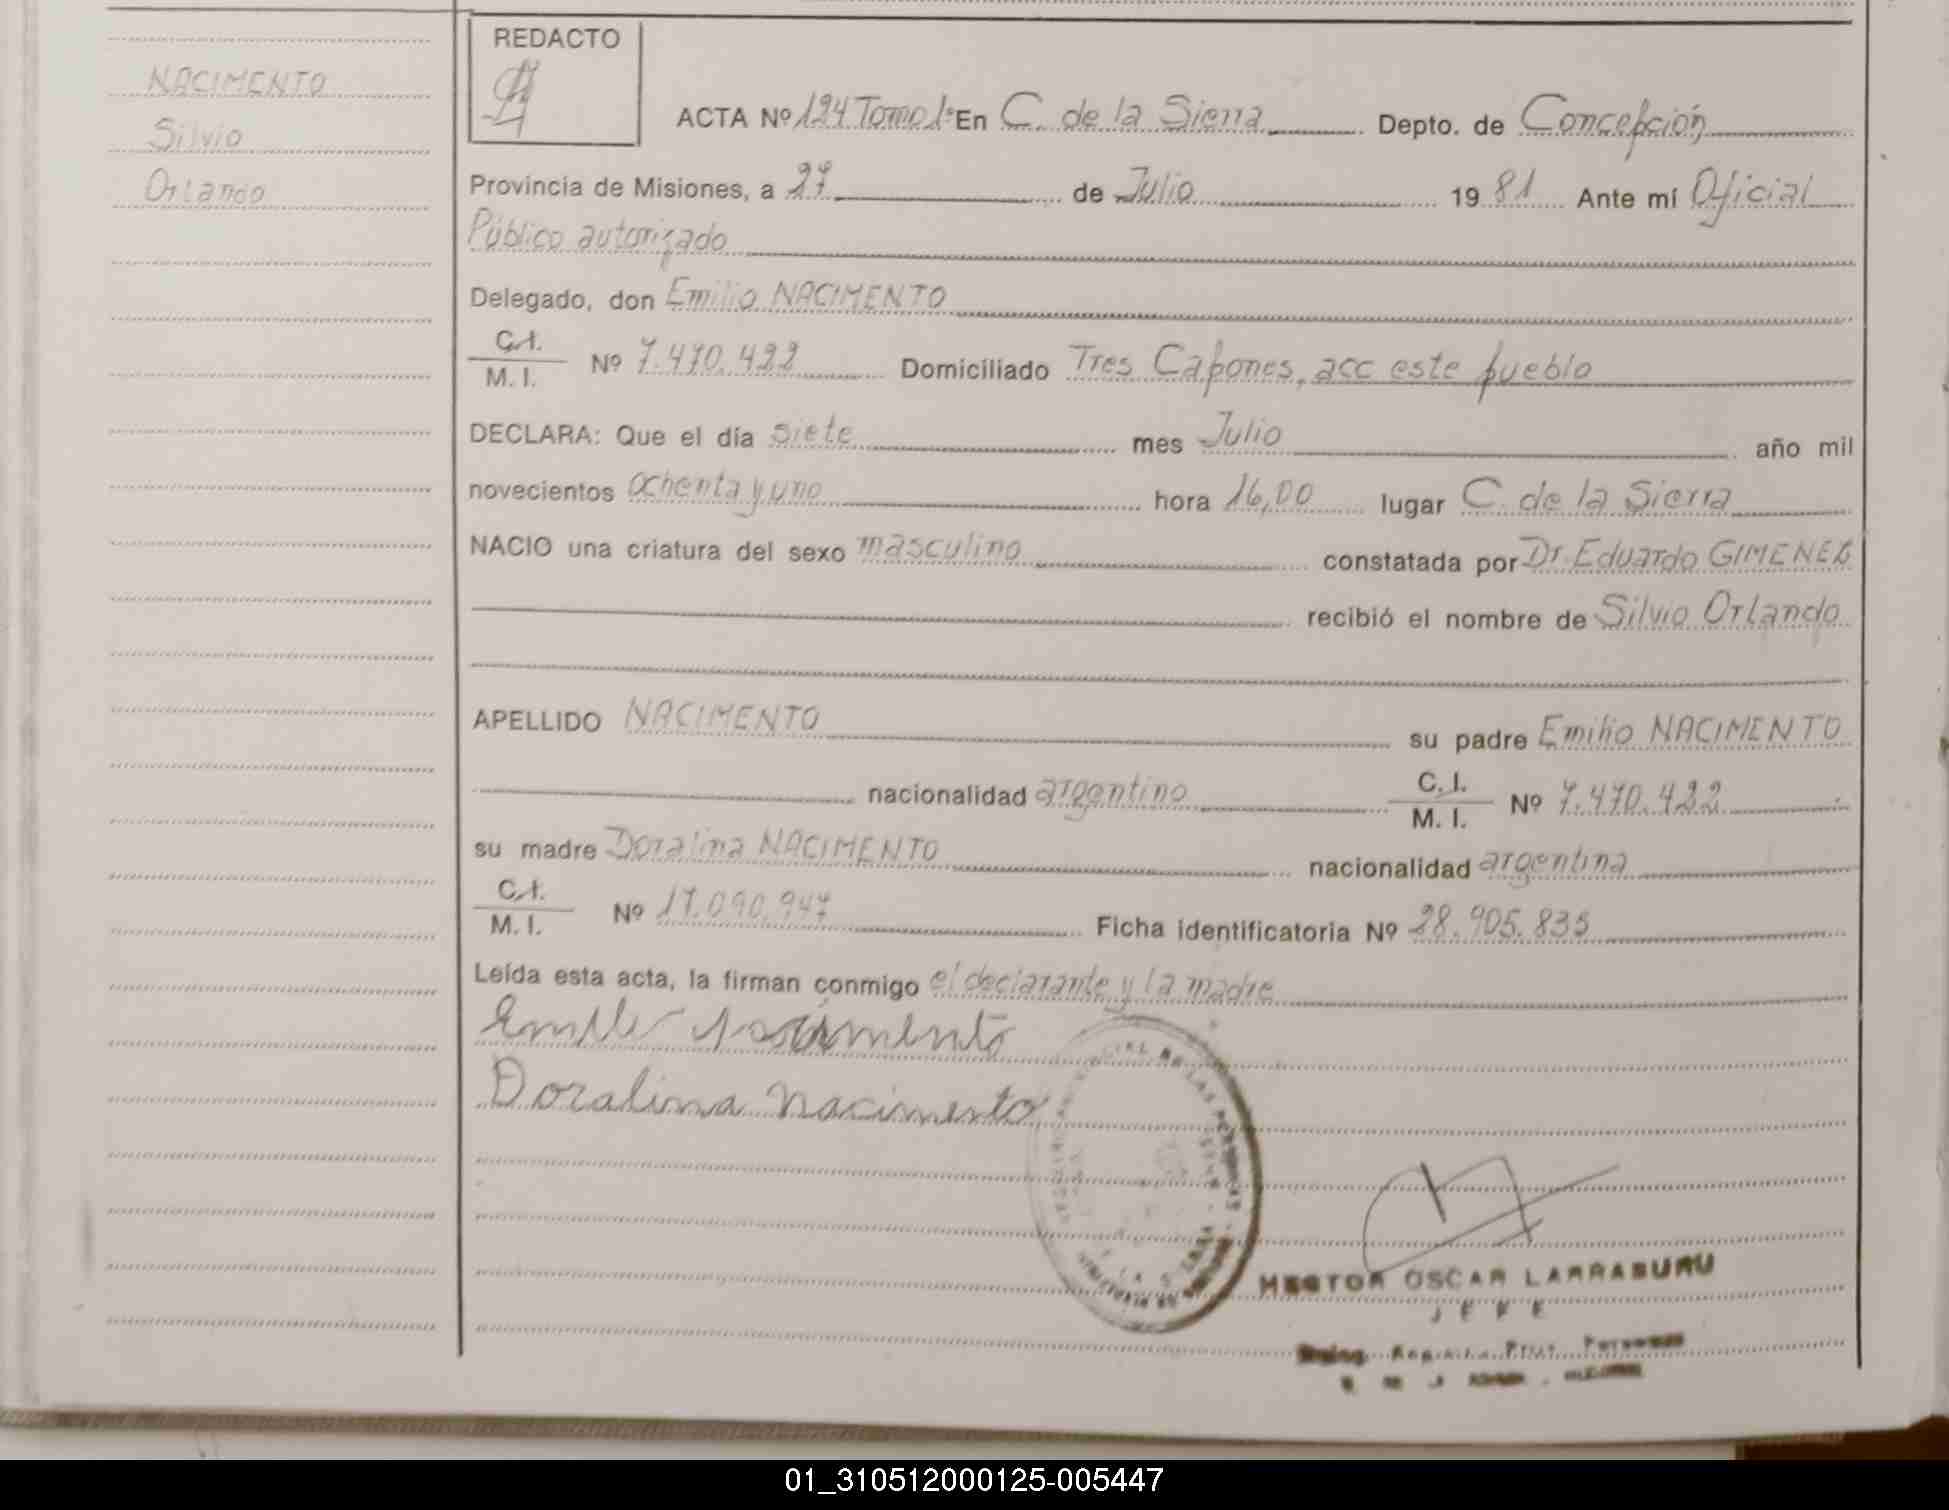 REDACTO
NACIMENTO
Silvio
Orlando
ACTA Nº 124 Tomo 1º En C. de la Sierra Depto. de Concepción
Provincia de Misiones, a 27 de Julio 1981 Ante mí Oficial
Público autorizado
Delegado, don Emilio NACIMENTO
C.I.
M. I. Nº 7.470.422 Domiciliado Tres Capones, acc este pueblo
DECLARA: Que el día siete mes Julio año mil
novecientos ochenta y uno hora 16,00 lugar C. de la Sierra
NACIO una criatura del sexo masculino constatada por Dr. Eduardo GIMENEZ
recibió el nombre de Silvio Orlando
APELLIDO NACIMENTO su padre Emilio NACIMENTO
nacionalidad argentino C. I.
M. I. Nº 7.470.422
su madre Doralina NACIMENTO nacionalidad argentina
C.I.
M. I. Nº 17.090.947 Ficha identificatoria Nº 28.905.835
Leída esta acta, la firman conmigo el declarante y la madre
Emilio Nacimento
Doralina Nacimento
HECTOR OSCAR LARRABURU
JEFE
01_310512000125-005447